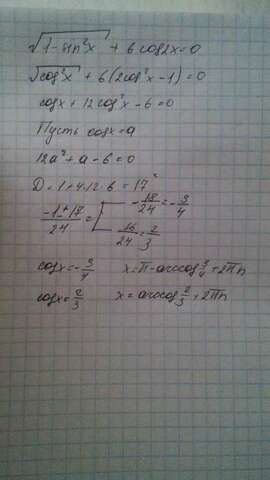 √1-sin²x + 6 cos2x=0
√cos²x + 6(2cos²x-1)=0
cosx+12cos²x-6=0
Пусть cosx=a
12a²+a-6=0
D=1+4·12·6=17²
-1±17/24= -18/24=-3/4
16/24=2/3
cosx=-3/4 x=π-arccos3/4+2πn
cosx=2/3 x=arccos2/3+2πn